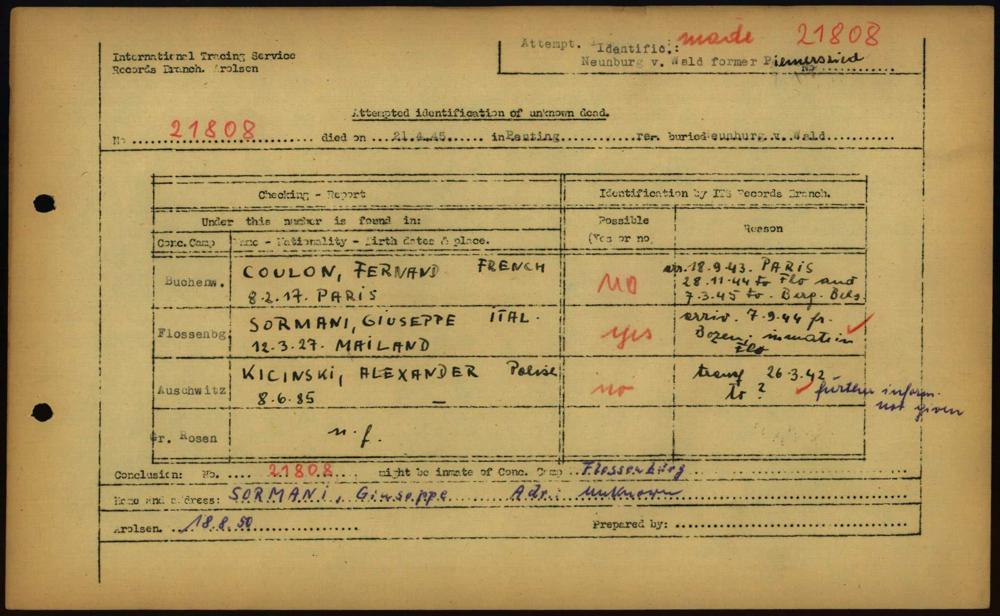 International Tracing Service
Records Branch. Arolsen
Attempt. Identific.: made 21808
Neunburg v. Wald former Piemersried
Attempted identification of unknown dead.
No 21808 died on 21.4.45. in Penting rer. buried Neunburg v. Wald.
Checking - Report Identification by ITS Records Branch.
Under this number is found in: Possible (Yes or no) Reason
Conc. Camp Name - Nationality - Birth dates & place.
Buchenw. COULON, FERNAND FRENCH NO arr. 18.9.43. PARIS
8.2.17. PARIS 28.11.44 to Flo and
7.3.45 to Berg. Bels.
Flossenbg SORMANI, GIUSEPPE ITAL. yes arriv. 7.9.44 fr.
12.3.27. MAILAND Bozen, inmate in
Flo
Auschwitz KICINSKI, ALEXANDER Polish no transf 26.3.42
8.6.85 — to ? further inform.
not given
Gr. Rosen n. f.
Conclusion: No. 21808 might be inmate of Conc. Camp Flossenbürg
Name and address: SORMANI, Giuseppe Adr.: unknown
Arolsen. 18.8.50 Prepared by: